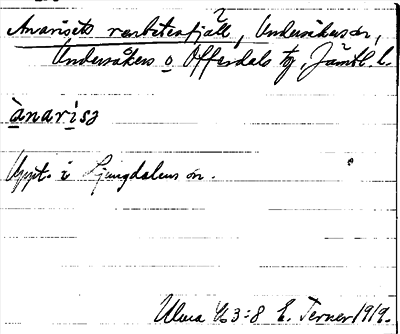 Anarisets renbetesfjäll, Undersåkers sn,
Undersåkers o Offerdals tg, Jämtl. l.
ànarisə
Uppt. i Ljungdalens sn.
Ulma 63:8 E. Terner 1919.